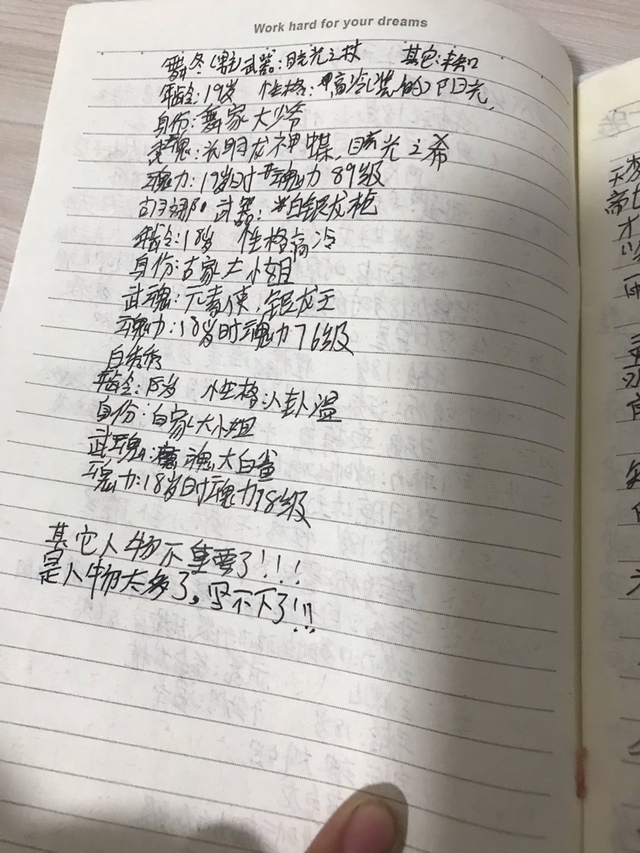 Work hard for your dreams
舞冬(男主)武器:时光之杖 其它:未知
年龄:19岁 性格:高冷(装的)阳光,
身份:舞家大少爷
武魂:光明龙神蝶,时光之希
魂力:19岁时魂力89级
古月娜 武器:白银龙枪
年龄:18岁 性格高冷
身份:古家大小姐
武魂:元素使,银龙王
魂力:18岁时魂力76级
白秀秀
年龄:18岁 性格:八卦温
身份:白家大小姐
武魂:魔魂大白鲨
魂力:18岁时魂力78级
其它人物不重要了!!!
是人物太多了,写不下了!!!